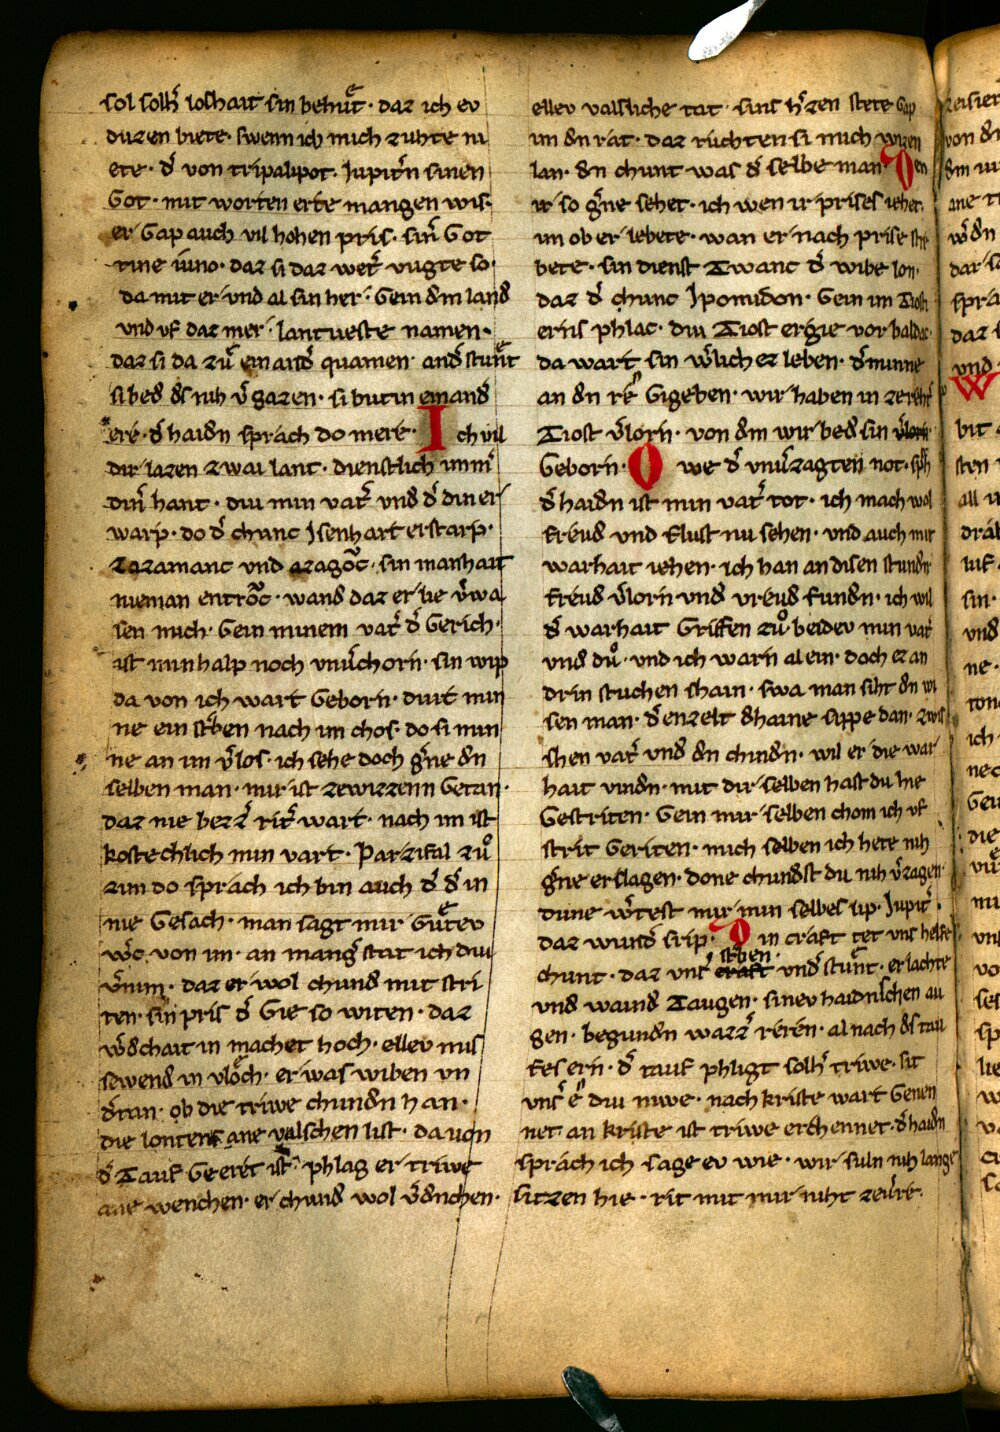 sol solh̾ loshait sin behuͤt · daz ich ev
duzen biete · swenn ich mich zuhte ni
ete · d̾ von tripalipot · Jupit̾n sinen
Got · mit worten erte mangen wis ·
er Gap auch vil hohen pris · sin̾ Got
tine iuno · daz si daz wet̾ vugte so ·
da mit er · vnd al sin her · Gein dem land
vnd vf daz mer · lantveste namen ·
daz si da zuͤ ein and̾ quamen · and̾stuͤnt
si bed̾ d̾s nih v̾gazen · si butin einand̾
ere · d̾ haid̾n sprach do mere · Ich wil
dir lazen zwai lant · dienstlich imm̾
din̾ hant · diu min vat̾ vnd̾ d̾ din er
warp · do d̾ chunc Isenhart erstarp ·
Zazamanc vnd azagoͮc · sin manhait
nieman entroͮc · wand̾ daz er lie v̾wa
sen mich · Gein minem vat̾ d̾ Gerich ·
ist min halp noch vnu̾chorn · sin wip
da von ich wart Geborn · duit min
ne ein st̾ben nach im chos · do si min
ne an im v̾los · ich sehe doch g̾ne d̾n
selben man · mir ist zewizzenn Getan ·
daz nie bezz̾ rit̾ wart · nach im ist
kostechlich min vart · Parzifal zuͦ
zim do sprach ich bin auch d̾ d̾ in
nie Gesach · man sagt mir Guͤtev
w̾c von im · an mang̾ stat ich diu
v̾nim · daz er wol chund̾ mit stri
ten · sin pris d̾ Gie so witen · daz
w̾dchait in machet hoch · ellev mis
sewend̾ in vloͤch · er was wiben vn
d̾tan · ob die triwe chund̾n han ·
die lontens ane valschen list · da von
d̾ Tauf Geeret ist · phlag er triwe
ane wenchen · er chund̾ wol v̾d̾nchen ·
ellev valsliche tat · sins h̾zen stete Gap
im d̾n rat · daz ruchten si mich wizen
lan · d̾n chunt was d̾ selbe man · Den
ir so g̾ne sehet · ich wen ir prises iehet ·
im ob er lebete · wan er nach prise stre
bete · sin dienst Twanc d̾ wibe lon ·
daz d̾ chunc Ipomidon · Gein im Tiost
erns phlac · diu Tiost ergie vor baldac ·
da wart sin w̾lichez leben · d̾ minne
an d̾n re Gigeben · wir haben in zerehter
Tiost v̾lorn · von dem wir bed̾ sin
Geborn · Owe d̾ vnu̾zagten not · sprach
d̾ haid̾n ist min vat̾ tot · ich mach wol
freud̾ vnd flust nu sehen · vnd auch mit
warhait iehen · ich han an disen stund̾n
freud̾ v̾lorn vnd vreud̾ fund̾n · ich wil
d̾ warhait Griffen zuͦ · beidev min vat̾
vnd duͦ · vnd ich warn al ein · doch ez an
drin stuchen shain · swa man siht d̾n wi
sen man · d̾ enzelt d̾haine sippe dan · zwis
shen vat̾ vnd d̾n chind̾n · wil er die war
hait vind̾n · mit dir selben hast du hie
Gestriten · Gein mir selben chom ich vf
strit Geriten · mich selben ich hete nih
g̾ne erslagen · done chundst du nih v̾zagen
dune w̾test mir min selbes lip · Jupit̾
daz wund̾ srip · Din craft tet vns helfe
chunt · daz vns̾ craft st̾ben vnd̾ stuͤnt · er lachte
vnd waind̾ Taugen · sinev haidn̾schen au
gen · begund̾n wazz̾ reren · al nach d̾s tau
fes ern · d̾ tauf phligt solh̾ triwe · sit
vns̾ e diu niwe · nach kriste wart Genen
net · an kriste ist triwe erchennet · d̾ haid̾n
sprach ich sage ev wie · wir suln nih lange
sitzen hie · rit mit mir niht zeu̾re ·